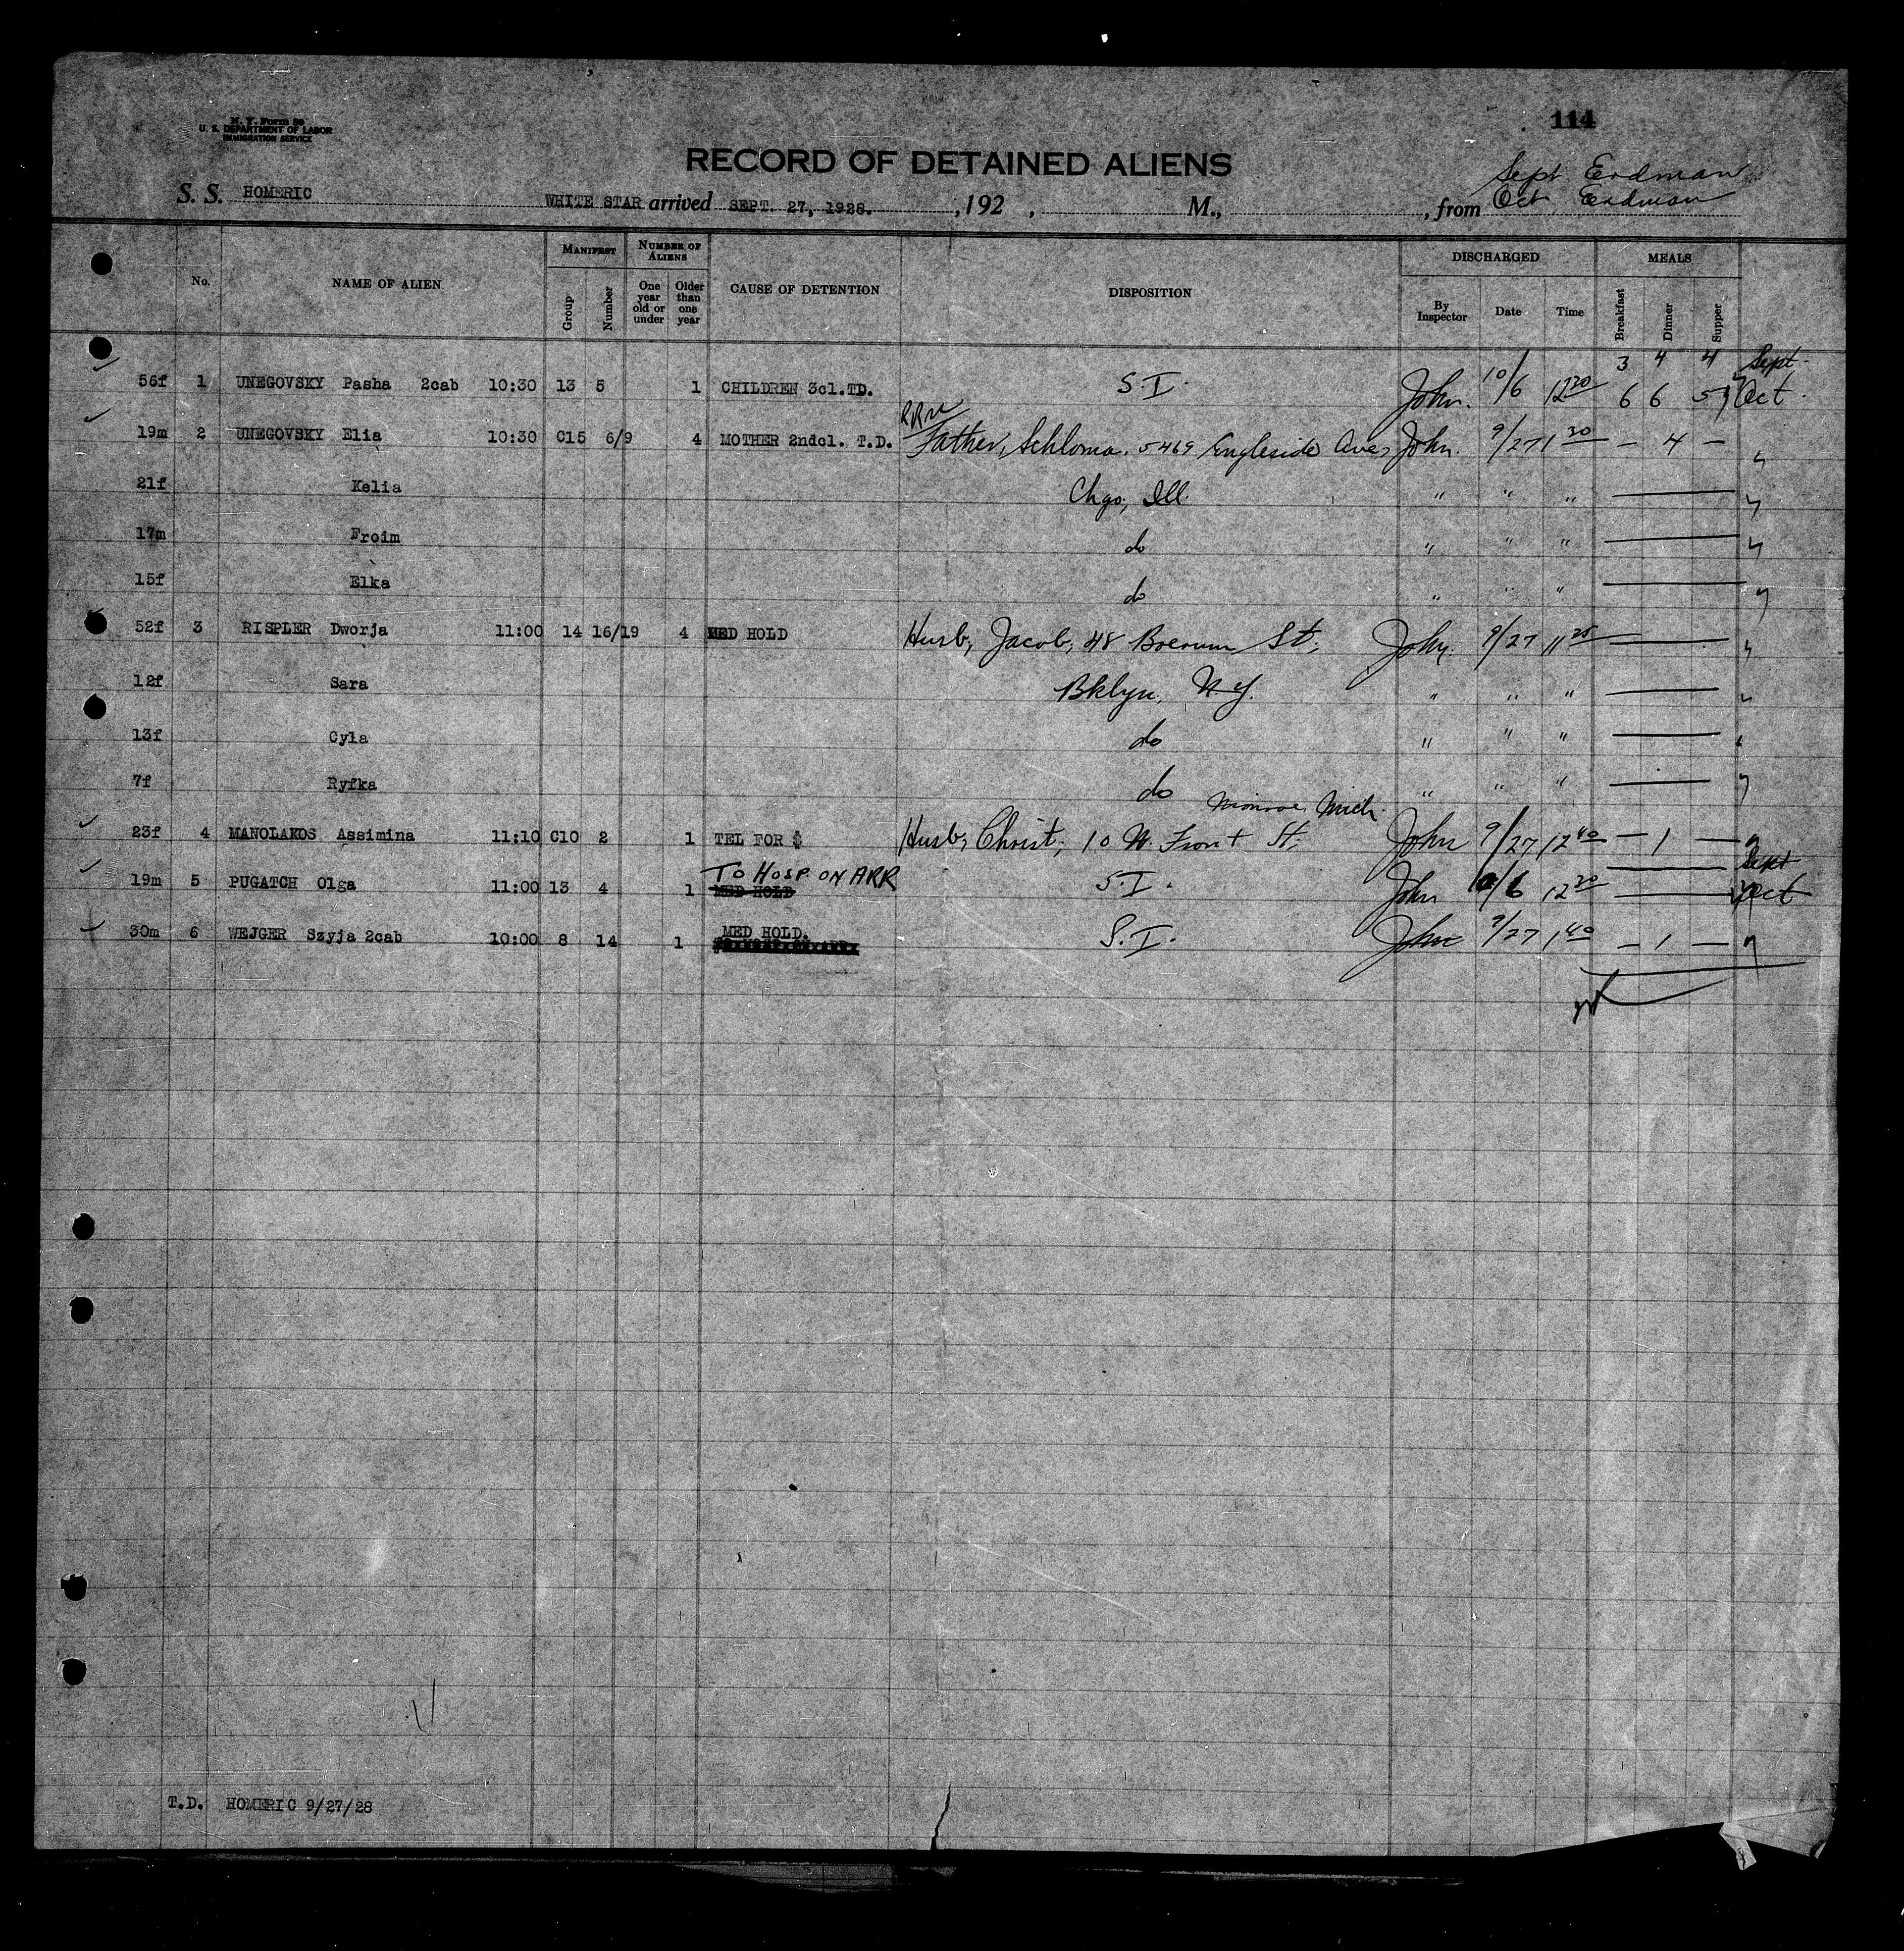 N. Y. Form 89
U. S. DEPARTMENT OF LABOR
IMMIGRATION SERVICE
114
RECORD OF DETAINED ALIENS
Sept Erdman
S. S. HOMERIC WHITE STAR arrived SEPT. 27, 1928. , 192 , M., , from Oct. Erdman
No. NAME OF ALIEN MANIFEST Group Number NUMBER OF ALIENS One year old or under Older than one year CAUSE OF DETENTION DISPOSITION DISCHARGED By Inspector Date Time MEALS Breakfast Dinner Supper
3 4 4 Sept.
56f 1 UNEGOVSKY Pasha 2cab 10:30 13 5 1 CHILDREN 3cl.TD. S.I. John. 10/6 12 20 6 6 5 Oct.
RRM
19m 2 UNEGOVSKY Elia 10:30 C15 6/9 4 MOTHER 2ndcl. T.D. Father, Schloma. 5469 Engleside Ave, John. 9/27 1 30 — 4 —
21f Kelia Chgo, Ill. " " "
17m Froim do " " "
15f Elka do " " "
52f 3 RISPLER Dworja 11:00 14 16/19 4 MED HOLD Husb, Jacob, 48 Boerum St, John. 9/27 11 25
12f Sara Bklyn, N.Y. " " "
13f Cyla do " " "
7f Ryfka do " " "
Monroe, Mich.
23f 4 MANOLAKOS Assimina 11:10 C10 2 1 TEL FOR $ Husb, Christ, 10 W. Front St, John 9/27 12 40 — 1 —
TO HOSP. ON ARR Sept
19m 5 PUGATCH Olga 11:00 13 4 1 MED HOLD S.I. John 10/6 12 20 Oct
30m 6 WEJGER Szyja 2cab 10:00 8 14 1 MED HOLD. S.I. John 9/27 1 40 — 1 —
T.D. HOMERIC 9/27/28